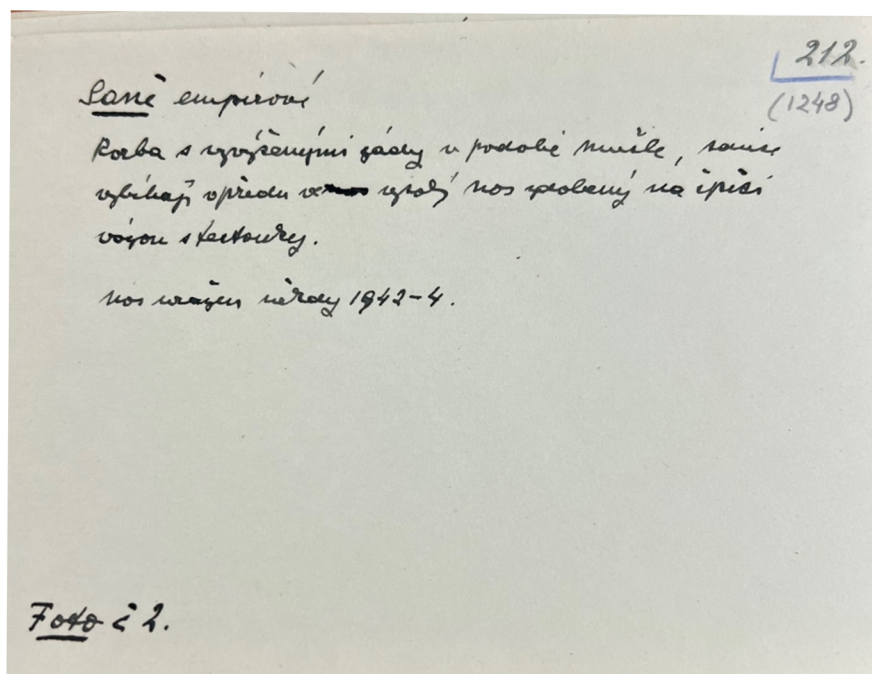 212.
(1248)
Saně empirové
Korba s vyvýšenými zády v podobě mušle, sanice
vybíhají vpředu v vysoký nos zdobený na špici
vázou s festonky.
nos uražen někdy 1942-4.
Foto č 2.